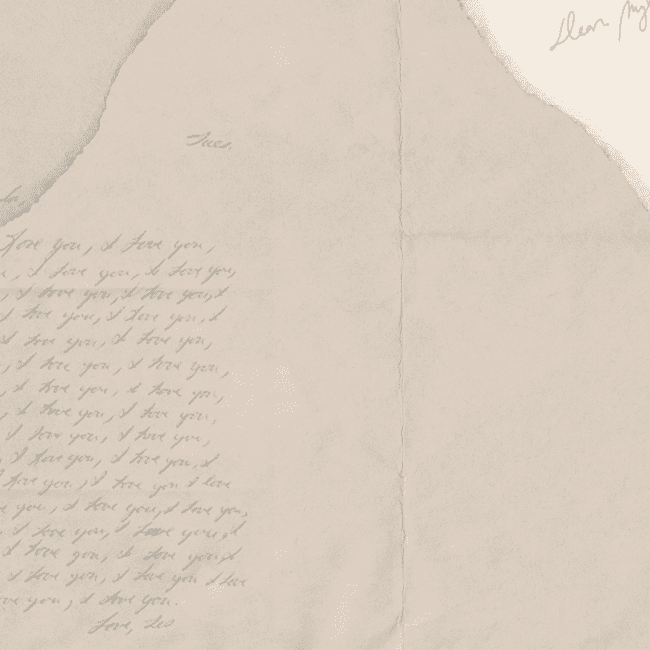 Dear
Tues.
Love you, I love you,
I love you, I love you,
I love you, I love you, I
I love you, I love you, I
I love you, I love you,
I love you, I love you,
I love you, I love you,
I love you, I love you,
I love you, I love you,
I love you, I love you, I
I love you, I love you I love
you, I love you, I love you,
I love you, I love you, I
I love you, I love you, I
I love you, I love you I love
you, I love you.
Love, Les